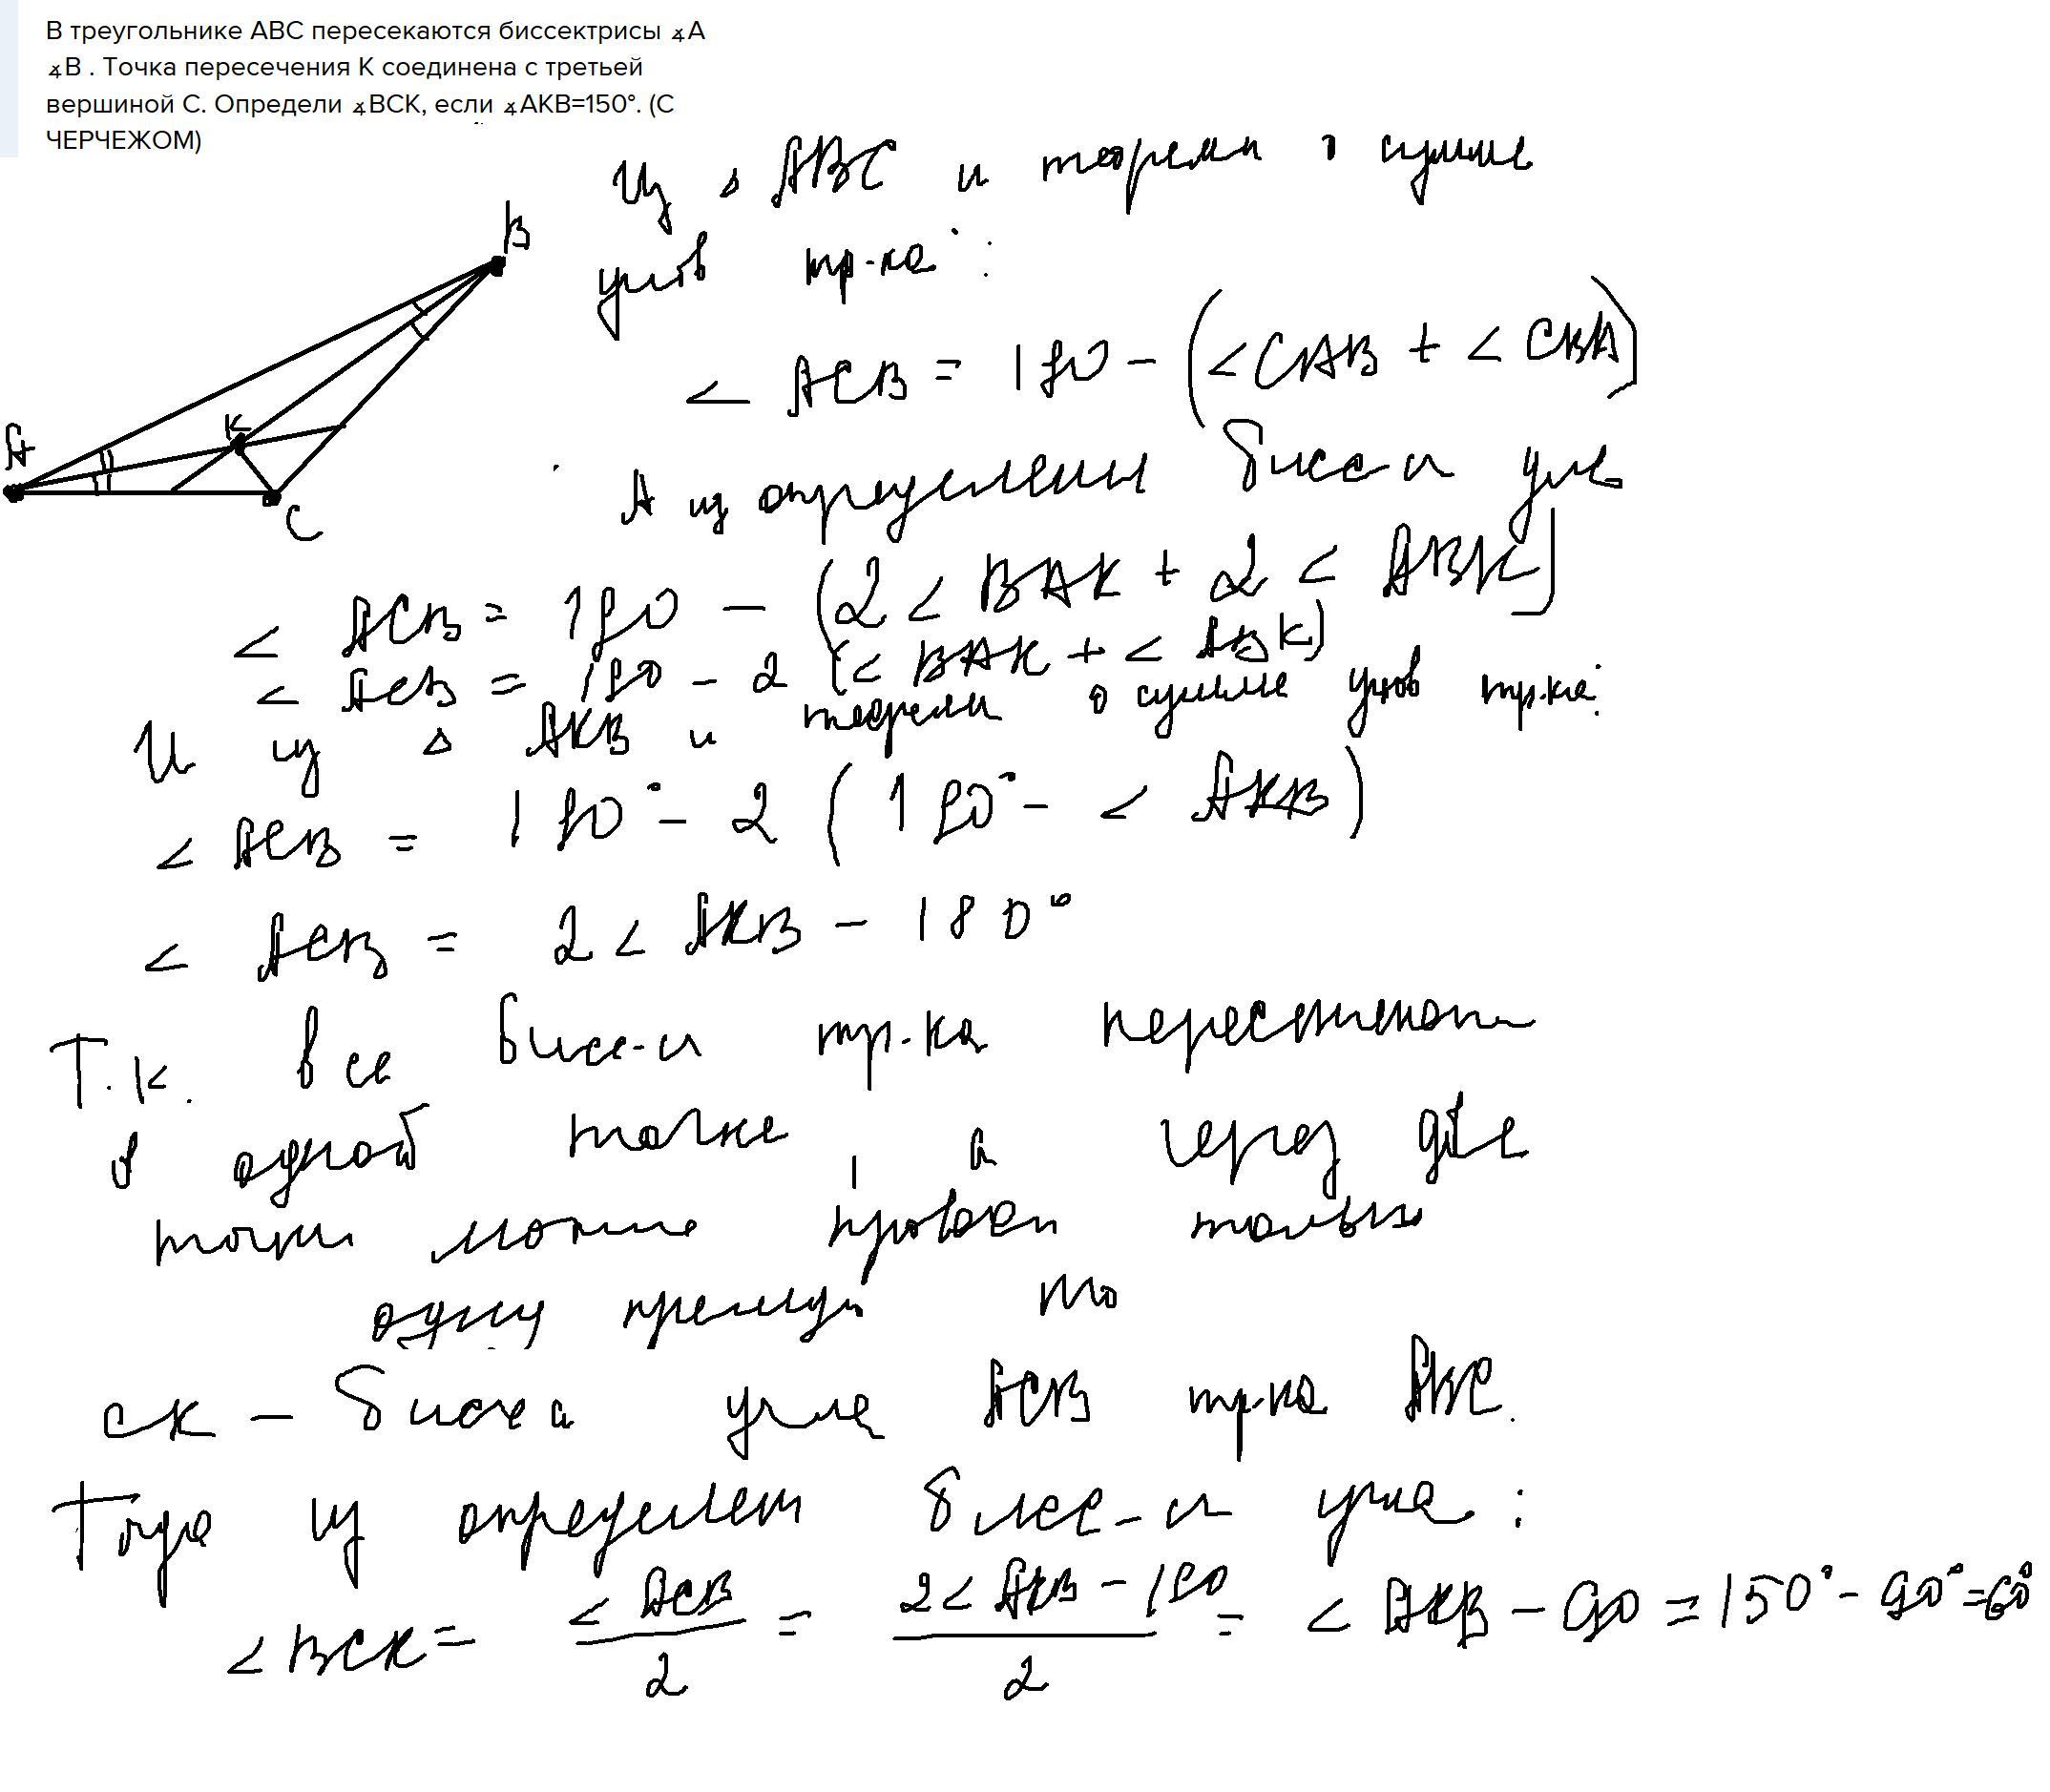 В треугольнике ABC пересекаются биссектрисы ∡A
∡B . Точка пересечения K соединена с третьей
вершиной C. Определи ∡BCK, если ∡AKB=150°. (С
ЧЕРЧЕЖОМ)
Из △ ABC и теоремы о сумме
углов тр-ка:
B
K
A
C
< ACB = 180 - (< CAB + < CBA)
А из определения бисс-и угла
< ACB = 180 - (2 < BAK + 2 < ABK)
< ACB = 180 - 2 (< BAK + < ABK)
И из △ AKB и теоремы о сумме углов тр-ка:
< ACB = 180° - 2 (180° - < AKB)
< ACB = 2 < AKB - 180°
Т.к. все бисс-и тр-ка пересекаются
в одной точке, а через две
точки можно провести только
одну прямую то
CK - бисс-а угла ACB тр-ка ABC.
Тогда из определения бисс-и угла:
< BCK = < ACB / 2 = 2 < AKB - 180 / 2 = < AKB - 90 = 150° - 90° = 60°